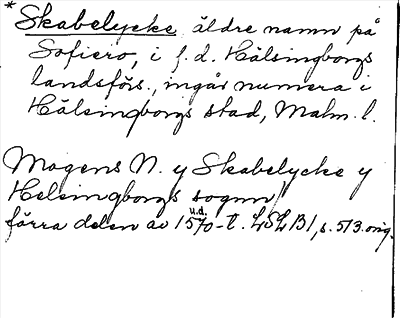 * Skabelycke äldre namn på
Sofiero, i f. d. Hälsingborgs
landsförs., ingår numera i
Hälsingborgs stad, Malm. l.
Mogens N. y Skabelycke y
Helsingborgs sognn
u.d.
förra delen av 1570-t. LSL B1, s. 513. orig.